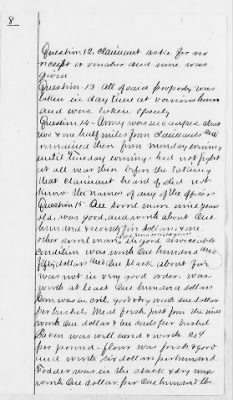 8
Question 12. Claimant asks for no
receipt or voucher and none was
given
Question 13 All of said property was
taken in day time at various hours
and were taken openly
Question 14 - Army was encamped about
two & one half miles from claimants and
remained there from monday evening
until Tuesday evening; had not fight
at all near then before the taking
that claimant heard of did not
know the names of any of the officers
Question 15 - One sorrel mare nine years
old, was good, and worth about One
hundred & seventy five dollars, one
other sorrel mare in good serviceable
condition was worth One hundred and
fifty dollars One black about five
was not in very good order was
worth at least One hundred dollars
Corn was in crib, good & dry worth One dollar
per bushel. Meal fresh just from the mill
worth One dollar & ten cents per bushel
Bacon was well cured & worth
per pound - flour was fresh & good
and worth six dollars per hundred
Fodder was in the stack & dry was
worth One dollar per One hundred lbs.